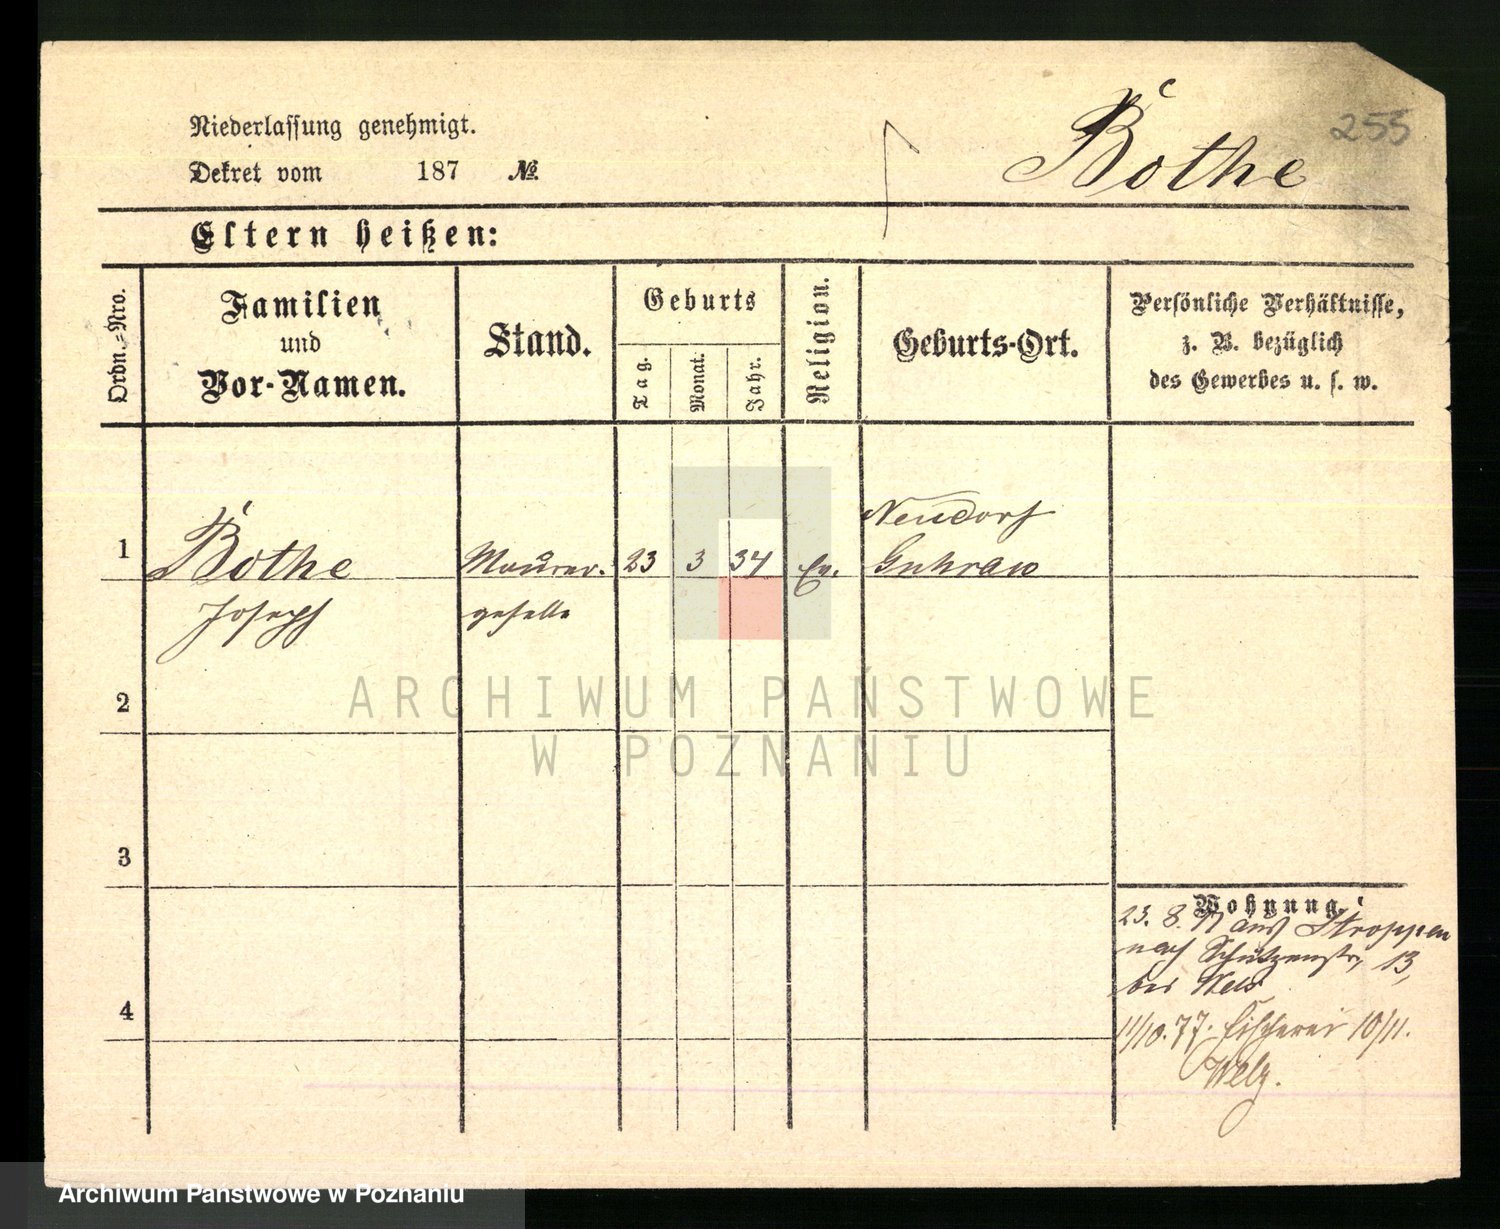 255
Niederlassung genehmigt.
Bothe
Dekret vom 187 No.
Eltern heißen:
Ordn.-Nro.
Familien
und
Vor-Namen.
Stand.
Geburts
Tag.
Monat.
Jahr.
Religion.
Geburts-Ort.
Persönliche Verhältnisse,
z. B. bezüglich
des Gewerbes u. s. w.
1
Bothe
Joseph
Maurer-
geselle
23
3
34
Ev.
Neudorf
Guhrau
2
3
4
Wohnung.
23. 8. 77 aus Stroppen
nach Schützenstr. 13,
bei
11/10. 77. Fischerei 10/11.
Welz.
ARCHIWUM PAŃSTWOWE
W POZNANIU
Archiwum Państwowe w Poznaniu